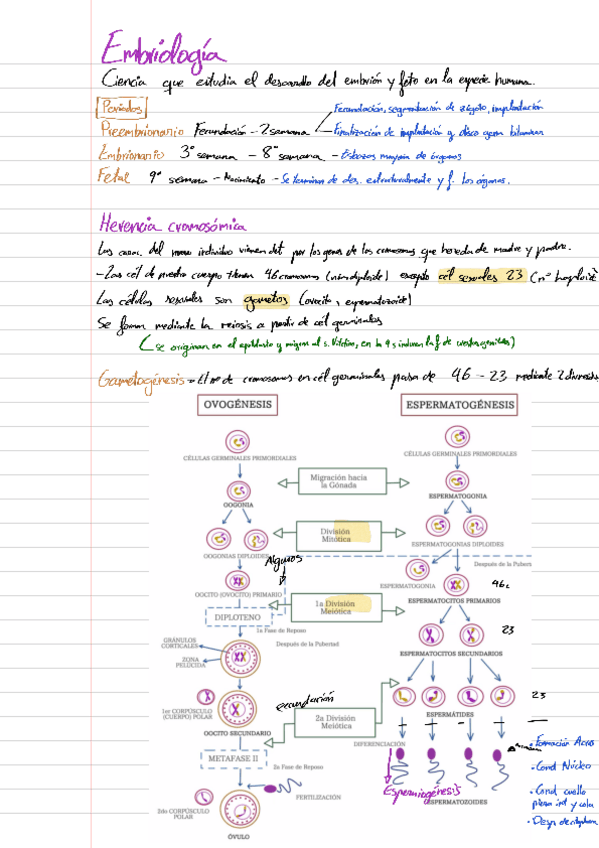 Embriología
Ciencia que estudia el desarrollo del embrión y feto en la especie humana.
Periodos
Fecundación, segmentación de zigoto, implantación
Preembrionario Fecundación - 2 semana
Finalización de implantación y disco germ bilaminar
Embrionario 3ª semana - 8ª semana - Esbozos mayoría de órganos
Fetal 9ª semana - Nacimiento - Se terminan de des. estructuralmente y f. los órganos.
Herencia cromosómica
Las carac. del nuevo individuo vienen det por los genes de los cromosomas que hereda de madre y padre.
- Las cél de nuestro cuerpo tienen 46 cromosomas (nºdiploide) excepto cél sexuales 23 (nº haploide
Las células sexuales son gametos (ovocito y espermatozoide)
Se forman mediante la meiosis a partir de cél germinales
se originan en el epiblasto y migran al s. Vitelino, en la
Gametogénesis - El nº de cromosomas en cél germinales pasa de 46 - 23 mediante 2 divisiones
OVOGÉNESIS
ESPERMATOGÉNESIS
CÉLULAS GERMINALES PRIMORDIALES
CÉLULAS GERMINALES PRIMORDIALES
Migración hacia
la Gónada
OOGONIA
ESPERMATOGONIA
División
Mitótica
OOGONIAS DIPLOIDES
ESPERMATOGONIAS DIPLOIDES
Algunos
Después de la Pubert
ESPERMATOGONIA
46c
OOCITO (OVOCITO) PRIMARIO
ESPERMATOCITOS PRIMARIOS
1a División
Meiótica
DIPLOTENO
1a Fase de Reposo
23
GRÁNULOS
CORTICALES
Después de la Pubertad
ESPERMATOCITOS SECUNDARIOS
ZONA
PELÚCIDA
23
1er CORPÚSCULO
(CUERPO) POLAR
fecundación
ESPERMÁTIDES
OOCITO SECUNDARIO
2a División
Meiótica
METAFASE II
DIFERENCIACIÓN
• Formación Acros
2a Fase de Reposo
• Cond Núcleo
Espermiogénesis
FERTILIZACIÓN
ESPERMATOZOIDES
• Cond cuello
pieza int y cola
2do CORPÚSCULO
POLAR
ÓVULO